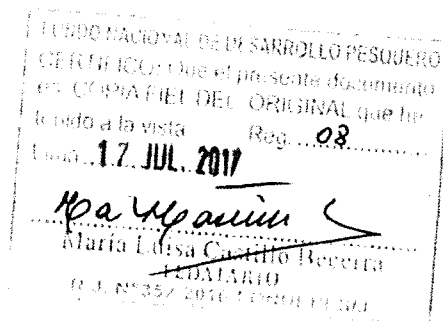 FONDO NACIONAL DE DESARROLLO PESQUERO
CERTIFICO: Que el presente documento
es COPIA FIEL DEL ORIGINAL que he
tenido a la vista Reg. ..08........
Lima, ..17 JUL. 2017
María Luisa Castillo Becerra
FEDATARIO
R.J. N° 352-2016-FONDEPES/J